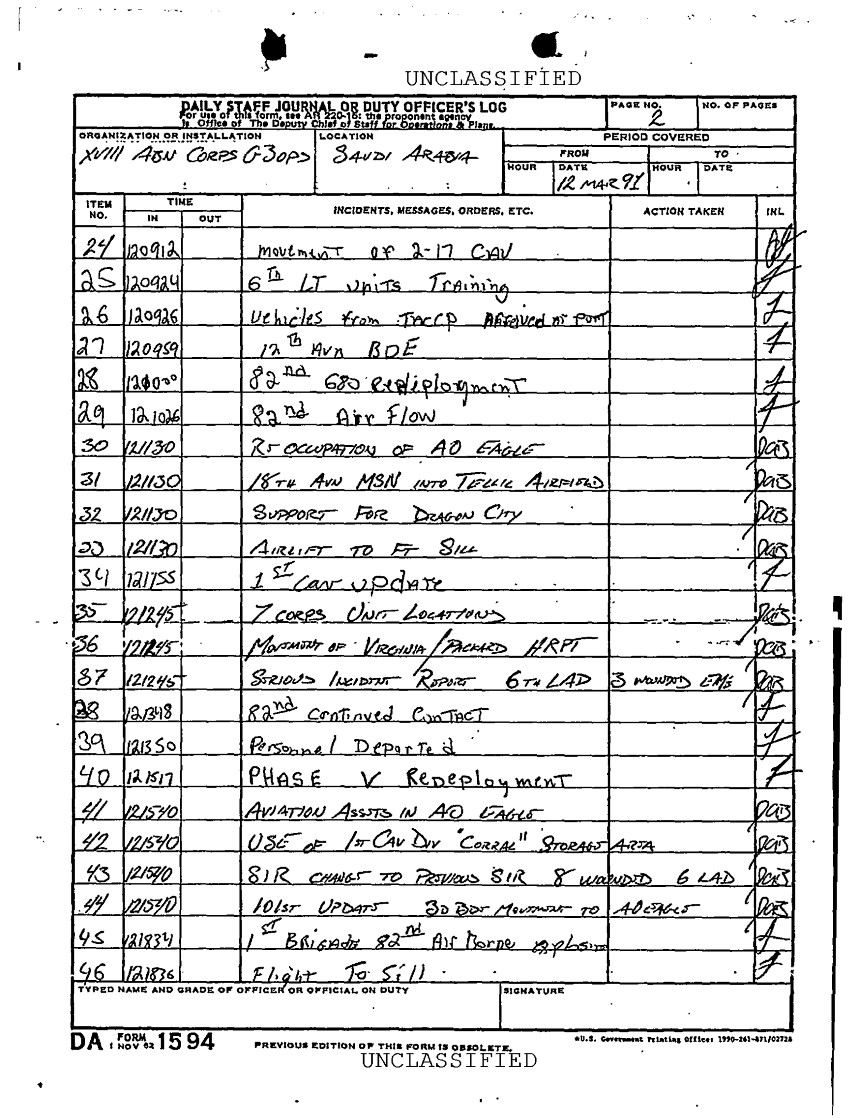 UNCLASSIFIED
DAILY STAFF JOURNAL OR DUTY OFFICER'S LOG
For use of this form, see AR 220-15; the proponent agency
is Office of The Deputy Chief of Staff for Operations & Plans.
PAGE NO.
2
NO. OF PAGES
ORGANIZATION OR INSTALLATION
XVIII ABN CORPS G3 OPS
LOCATION
SAUDI ARABIA
PERIOD COVERED
FROM
TO
HOUR
DATE
12 MAR 91
HOUR
DATE
ITEM NO.
TIME
IN
OUT
INCIDENTS, MESSAGES, ORDERS, ETC.
ACTION TAKEN
INL
24 120912 movement of 2-17 CAV
25 120924 6th LT units Training
26 120926 Vehicles from TACCP Arrived at Port
27 120959 12th Avn BDE
28 82nd 680 redeployment
29 121026 82nd Air Flow
30 121130 RE OCCUPATION OF AO EAGLE DCB
31 121130 18TH AVN MSN INTO TELLIL AIRFIELD DCB
32 121130 SUPPORT FOR DRAGON CITY DCB
33 121130 AIRLIFT TO FT SILL DCB
34 121155 1ST Cav update
35 121245 7 CORPS UNIT LOCATIONS DCB
36 121245 MOVEMENT OF VIRGINIA/PACKARD HRPT DCB
37 121245 SERIOUS INCIDENT REPORT 6TH LAD 3 WOUNDED EMS DCB
38 121348 82nd continued contact
39 121350 Personnel Departed
40 121517 PHASE V Redeployment
41 121540 AVIATION ASSETS IN AO EAGLE DCB
42 121540 USE OF 1ST CAV DIV "CORRAL" STORAGE AREA DCB
43 121540 SIR CHANGE TO PREVIOUS SIR 8 WOUNDED 6 LAD DCB
44 121540 101ST UPDATE 3D BDE MOVEMENT TO AO EAGLE DCB
45 121834 1ST BRIGADE 82nd Air Borne explosion
46 121836 Flight To Sill
TYPED NAME AND GRADE OF OFFICER OR OFFICIAL ON DUTY
SIGNATURE
DA FORM 1 NOV 62 1594
PREVIOUS EDITION OF THIS FORM IS OBSOLETE.
*U.S. Government Printing Office: 1990-261-871/02728
UNCLASSIFIED